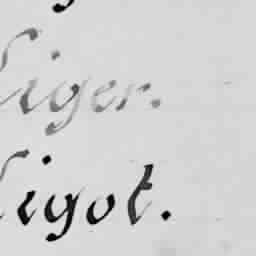 Liger.
Ligot.